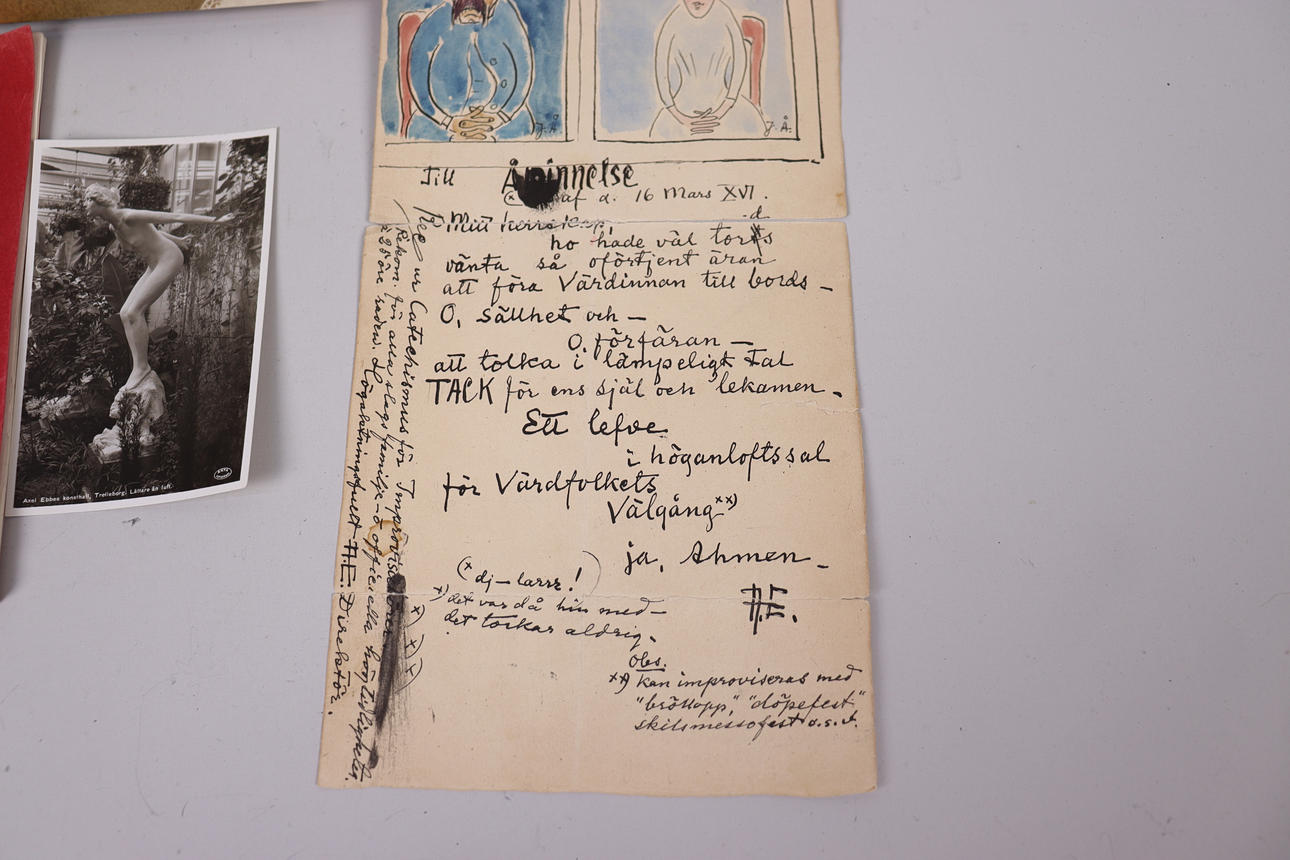 J.Å
J.Å.
Till Åminnelse
(x af d. 16 Mars XVI.
Mitt herrskap,
d
ho hade väl torts
vänta så oförtjent äran
att föra Värdinnan till bords –
O, sällhet och –
O, förfäran –
att tolka i lämpeligt Tal
TACK för ens själ och lekamen.
Ett lefve
i höganloftssal
för Värdfolkets
Välgång xx)
ja, Ahmen –
(x dj–larrr!)
x) det var då hin med–
det torkar aldrig.
H.E.
Obs.
xx) kan improviseras med
"bröllopp", "döpefest"
skilsmessofest o.s.v.
ur Catechismus för Improvisatörer x) x) x)
Rekom. för alla slags familje- o officiella högtidligheter,
a 25 öre raden. Högaktningsfullt H.E. Direktör.
Axel Ebbes konsthall, Trelleborg. Lättare än luft.